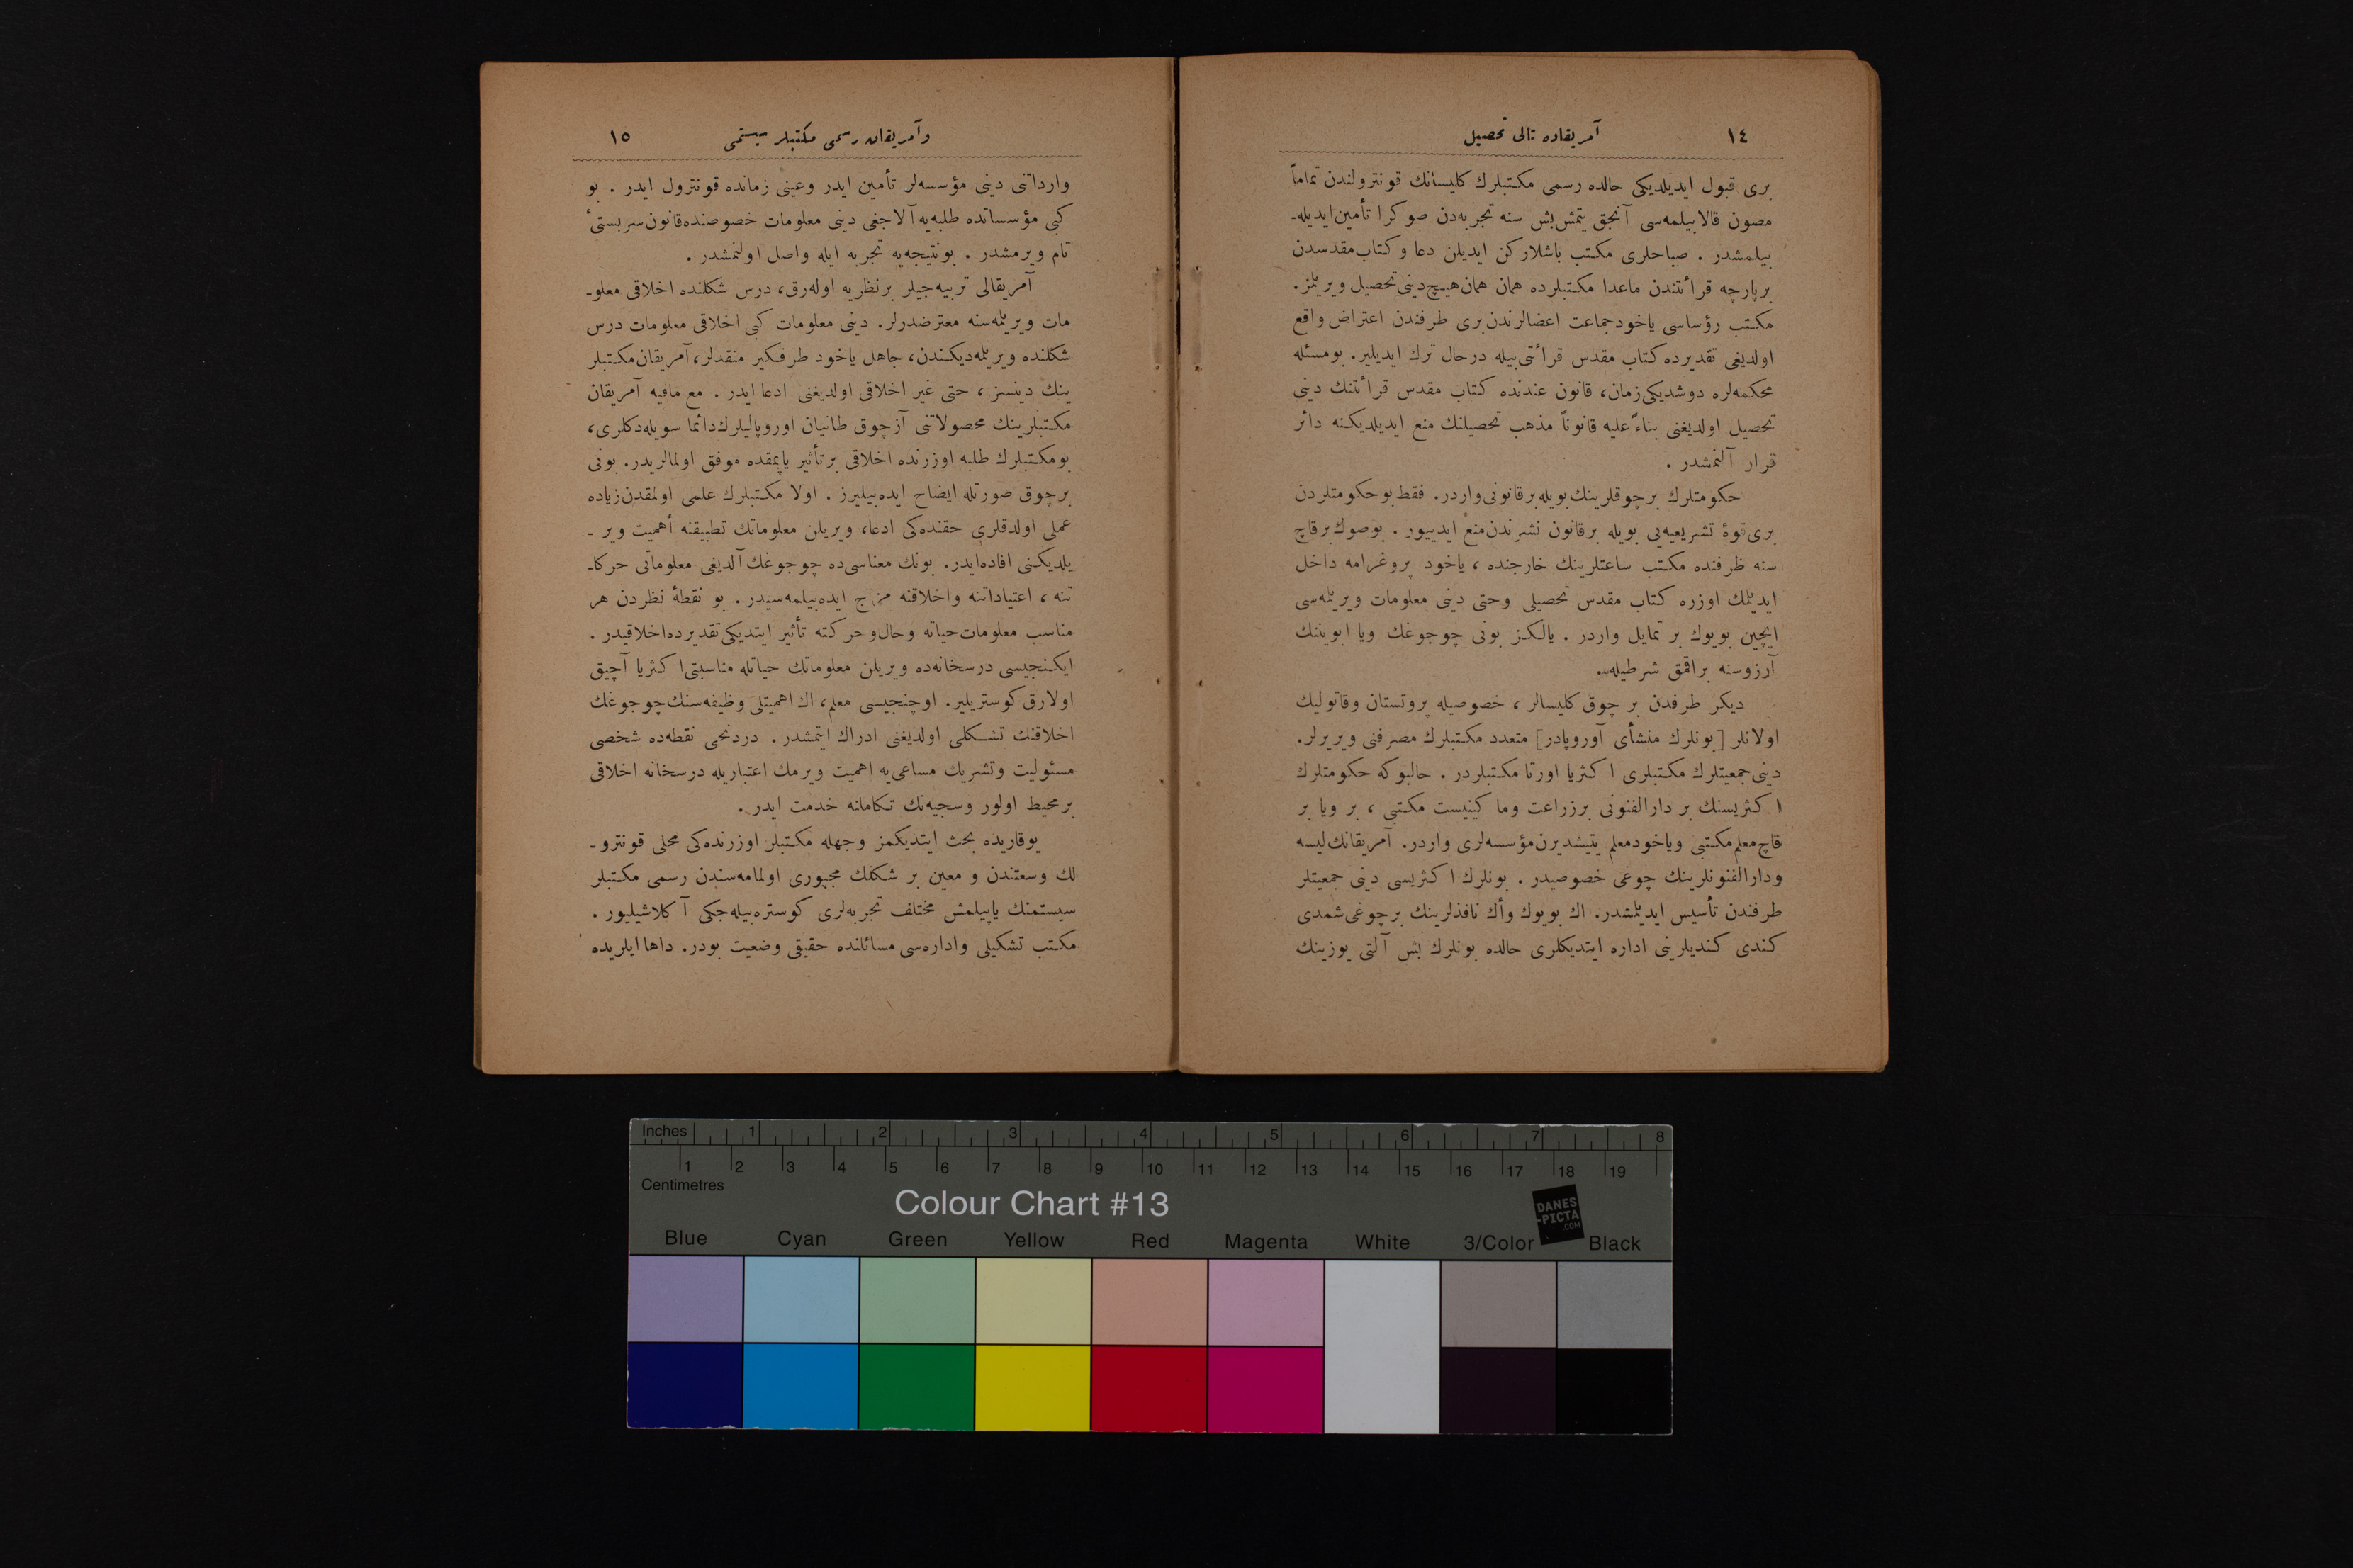 ١٤
آمریقاده تالی تحصیل
بری قبول ایدیلدیکی حالده رسمی مکتبلرك کلیسانك قونترولندن تماماً
مصون قالابیلمه‌سی آنجق یتمش‌بش سنه تجربه‌دن صوکرا تأمین ایدیله‌ـ
بیلمشدر . صباحلری مکتب باشلارکن ایدیلن دعا و کتاب مقدسدن
برپارچه قرأتندن ماعدا مکتبلرده همان همان هیچ دینی تحصیل ویریلمز .
مکتب رؤساسی یاخود جماعت اعضالرندن بری طرفندن اعتراض واقع
اولدیغی تقدیرده کتاب مقدس قرأتی بیله درحال ترك ایدیلیر . بو مسئله
محکمه‌لره دوشدیکی زمان، قانون عندنده کتاب مقدس قرأتنك دینی
تحصیل اولدیغنی بناءً علیه قانوناً مذهب تحصیلنك منع ایدیلدیکنه دائر
قرار آلنمشدر .
حکومتلرك برچوقلرینك بویله بر قانونی واردر . فقط بو حکومتلردن
بری قوهٔ تشریعیه‌یی بویله برقانون نشرندن منع ایدییور . بوصوك برقاچ
سنه ظرفنده مکتب ساعتلرینك خارجنده ، یاخود پروغرامه داخل
ایدیلمك اوزره کتاب مقدس تحصیلی وحتی دینی معلومات ویریلمه‌سی
ایچین بویوك بر تمایل واردر . یالکز بونی چوجوغك ویا ابویننك
آرزوسنه براقمق شرطیله .
دیکر طرفدن بر چوق کلیسالر ، خصوصیله پروتستان وقاتولیك
اولانلر [بونلرك منشأی آوروپادر] متعدد مکتبلرك مصرفنی ویریرلر .
دینی جمعیتلرك مکتبلری اکثریا اورتا مکتبلردر . حالبوکه حکومتلرك
اکثریسنك بر دارالفنونی برزراعت وماکینیست مکتبی ، بر ویا بر
قاچ معلم مکتبی ویاخود معلم یتیشدیرن مؤسسه‌لری واردر . آمریقانك لیسه
ودارالفنونلرینك چوغی خصوصیدر . بونلرك اکثریسی دینی جمعیتلر
طرفندن تأسیس ایدیلمشدر . اك بویوك وأك نافذلرینك برچوغی شمدی
کندی کندیلرینی اداره ایتدیکلری حالده بونلرك بش آلتی یوزینك
وآمریقان رسمی مکتبلر سیستمی
١٥
وارداتنی دینی مؤسسه‌لر تأمین ایدر وعینی زمانده قونترول ایدر . بو
کبی مؤسساتده طلبه‌یه آلاجغی دینی معلومات خصوصنده قانون سربستیٔ
تام ویرمشدر . بونتیجه‌یه تجربه ایله واصل اولنمشدر .
آمریقالی تربیه‌جیلر برنظریه اوله‌رق، درس شکلنده اخلاقی معلوـ
مات ویریلمه‌سنه معترضدرلر . دینی معلومات کبی اخلاقی معلومات درس
شکلنده ویریلمه‌دیکندن، جاهل یاخود طرفکیر منقدلر، آمریقان مکتبلر
ینك دینسز ، حتی غیر اخلاقی اولدیغنی ادعا ایدر . مع مافیه آمریقان
مکتبلرینك محصولاتنی آز چوق طانیان اوروپالیلرك دائما سویله‌دکلری،
بومکتبلرك طلبه اوزرنده اخلاقی برتأثیر یاپمقده موفق اولمالریدر . بونی
برچوق صورتله ایضاح ایده‌بیلیرز . اولا مکتبلرك علمی اولمقدن زیاده
عملی اولدقلری حقنده‌کی ادعا، ویریلن معلوماتك تطبیقنه أهمیت ویر ـ
یلدیکنی افاده ایدر . بونك معناسی‌ده چوجوغك آلدیغی معلوماتی حرکاـ
تنه ، اعتیاداتنه واخلاقنه مزج ایده‌بیلمه‌سیدر . بو نقطهٔ نظردن هر
مناسب معلومات حیاته وحال وحرکته تأثیر ایتدیکی تقدیرده اخلاقیدر .
ایکنجیسی درسخانه‌ده ویریلن معلوماتك حیاتله مناسبتی اکثریا آچیق
اولارق کوستریلیر . اوچنجیسی معلم، اك اهمیتلی وظیفه‌سنك چوجوغك
اخلاقنك تشکلی اولدیغنی ادراك ایتمشدر . دردنجی نقطه‌ده شخصی
مسئولیت وتشریك مساعی‌یه اهمیت ویرمك اعتباریله درسخانه اخلاقی
برمحیط اولور وسجیه‌نك تکاملنه خدمت ایدر .
یوقاریده بحث ایتدیکمز وجهله مکتبلر اوزرنده‌کی محلی قونتروـ
لك وسعتندن و معین بر شکلك مجبوری اولمامه‌سندن رسمی مکتبلر
سیستمنك یاپیلمش مختلف تجربه‌لری کوستره‌بیله‌جکی آکلاشیلیور .
مکتب تشکیلی واداره‌سی مسائلنده حقیقی وضعیت بودر . داها ایلریده
Inches 1 2 3 4 5 6 7 8
1 2 3 4 5 6 7 8 9 10 11 12 13 14 15 16 17 18 19
Centimetres
Colour Chart #13
DANES
-PICTA
.COM
Blue Cyan Green Yellow Red Magenta White 3/Color Black